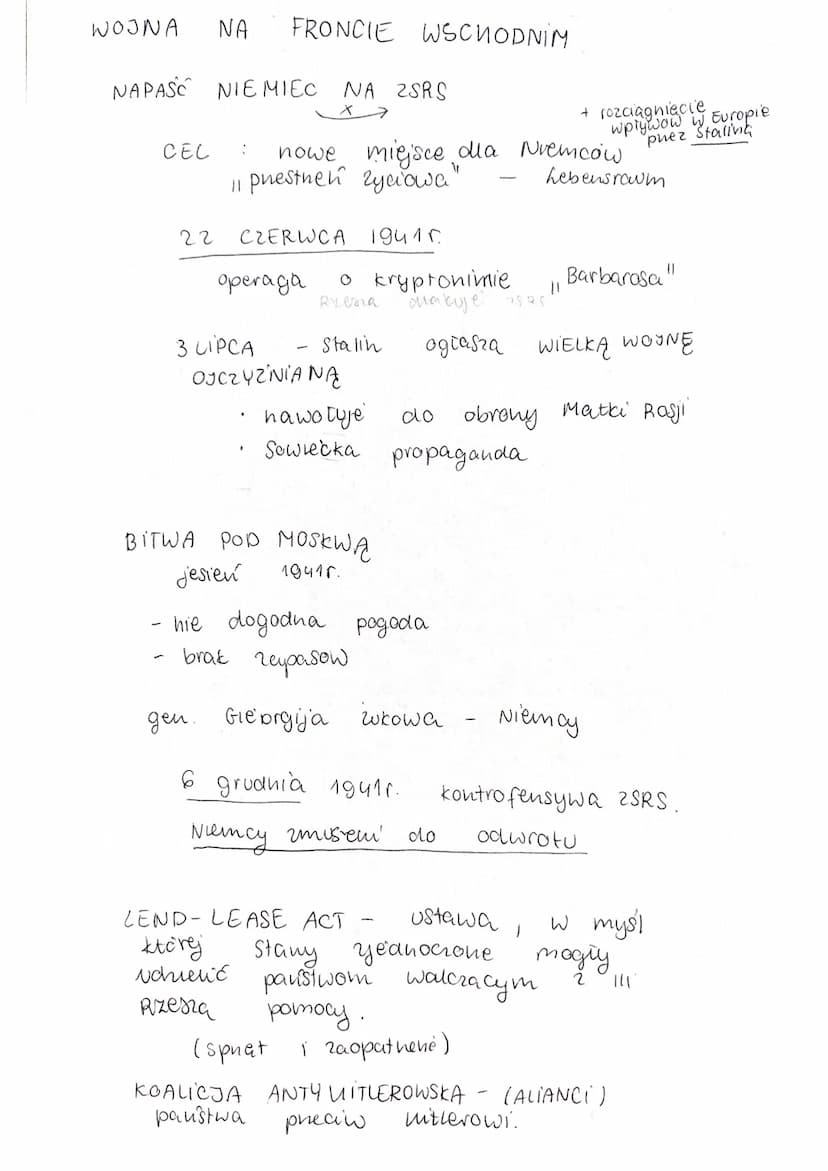 WOJNA NA FRONCIE WSCHODNIM
NAPAŚĆ NIEMIEC NA ZSRS
x
+ rozciągnięcie
wpływów w Europie
przez Stalina
CEL : nowe miejsce dla Niemców
„przestrzeń życiowa" – Lebensraum
22 CZERWCA 1941r.
operacja o kryptonimie „Barbarosa"
Rzesza atakuje ZSRS
3 LIPCA - Stalin ogłasza WIELKĄ WOJNĘ
OJCZYŹNIANĄ
· nawołuje do obrony Matki Rosji
· Sowiecka propaganda
BITWA POD MOSKWĄ
jesień 1941r.
- nie dogodna pogoda
- brak zapasów
gen. Gieorgija Żukowa - Niemcy
6 grudnia 1941r. kontrofensywa ZSRS.
Niemcy zmuszeni do odwrotu
LEND-LEASE ACT - ustawa, w myśl
której Stany Zjednoczone mogły
udzielić państwom walczącym z III
Rzeszą pomocy.
(sprzęt i zaopatrzenie)
KOALICJA ANTYHITLEROWSKA - (ALIANCI)
państwa przeciw Hitlerowi.